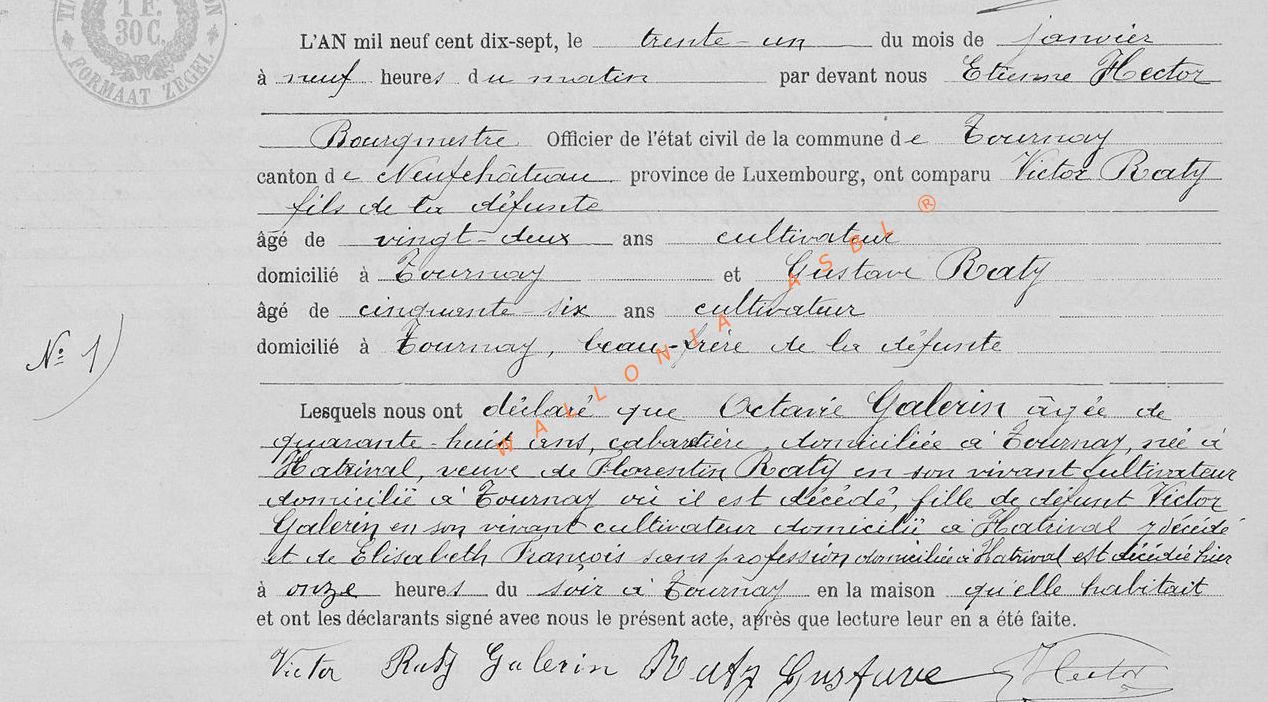 1 F.
30 C.
FORMAAT ZEGEL
L'AN mil neuf cent dix-sept, le trente-un du mois de janvier
à neuf heures du matin par devant nous Etienne Hector
Bourgmestre Officier de l'état civil de la commune de Tournay
canton de Neufchâteau province de Luxembourg, ont comparu Victor Raty
fils de la défunte
âgé de vingt-deux ans cultivateur
domicilié à Tournay et Gustave Raty
âgé de cinquante-six ans cultivateur
domicilié à Tournay, beau-frère de la défunte
Nº 1)
Lesquels nous ont déclaré que Octavie Galerin âgée de
quarante-huit ans, cabaretière, domiciliée à Tournay, née à
Hatrival, veuve de Florentin Raty en son vivant cultivateur
domicilié à Tournay où il est décédé, fille de défunt Victor
Galerin en son vivant cultivateur domicilié à Hatrival y décédé
et de Elisabeth François sans profession domiciliée à Hatrival est décédée hier
à onze heures du soir à Tournay en la maison qu'elle habitait
et ont les déclarants signé avec nous le présent acte, après que lecture leur en a été faite.
Victor Raty Galerin Raty Gustave Hector
WALLONIA ASBL ®